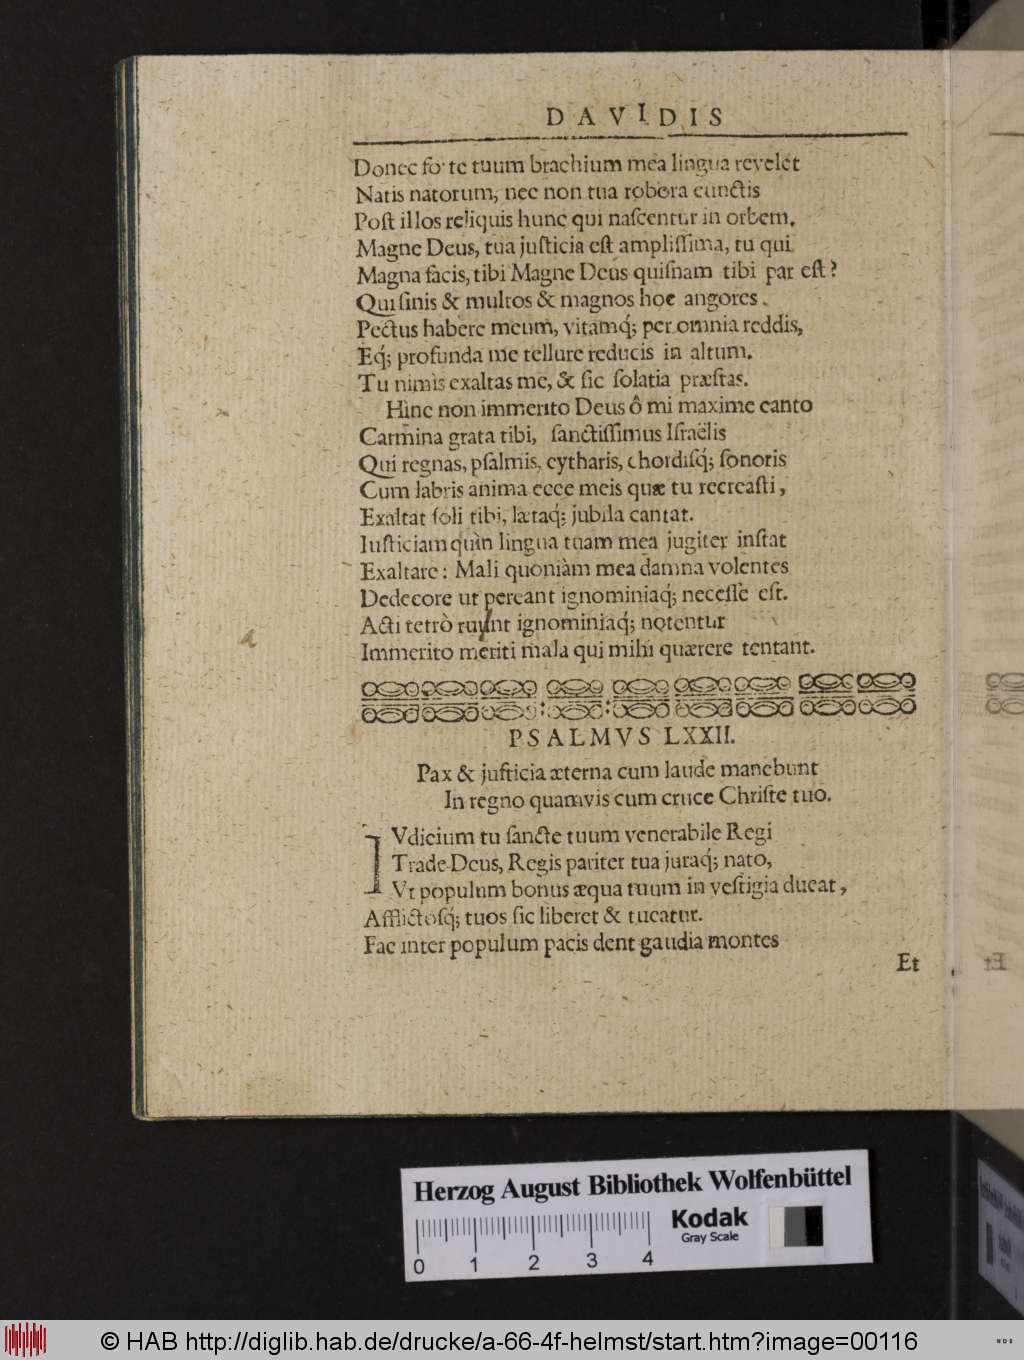 DAVIDIS
Donec forte tuum brachium mea lingua revelet
Natis natorum, nec non tua robora cunctis
Poſt illos reliquis hunc qui naſcentur in orbem.
Magne Deus, tua juſticia eſt ampliſſima, tu qui
Magna facis, tibi Magne Deus quiſnam tibi par eſt?
Qui ſinis & multos & magnos hoc angores
Pectus habere meum, vitamq́; per omnia reddis,
Eq́; profunda me tellure reducis in altum.
Tu nimis exaltas me, & ſic ſolatia præſtas.
Hinc non immerito Deus ô mi maxime canto
Carmina grata tibi, ſanctiſſimus Iſraëlis
Qui regnas, pſalmis, cytharis, chordiſq́; ſonoris
Cum labris anima ecce meis quæ tu recreaſti,
Exaltat ſoli tibi, lætaq́; jubila cantat.
Iuſticiam quin lingua tuam mea jugiter inſtat
Exaltare: Mali quoniàm mea damna volentes
Dedecore ut pereant ignominiaq́; neceſſe eſt.
Acti tetrò ruunt ignominiaq́; notentur
Immerito meriti mala qui mihi quærere tentant.
PSALMVS LXXII.
Pax & juſticia æterna cum laude manebunt
In regno quamvis cum cruce Chriſte tuo.
IVdicium tu ſancte tuum venerabile Regi
Trade Deus, Regis pariter tua juraq́; nato,
Vt populum bonus æqua tuum in veſtigia ducat,
Afflictoſq́; tuos ſic liberet & tueatur.
Fac inter populum pacis dent gaudia montes
Et
Herzog August Bibliothek Wolfenbüttel
Kodak
Gray Scale
0 1 2 3 4
© HAB http://diglib.hab.de/drucke/a-66-4f-helmst/start.htm?image=00116